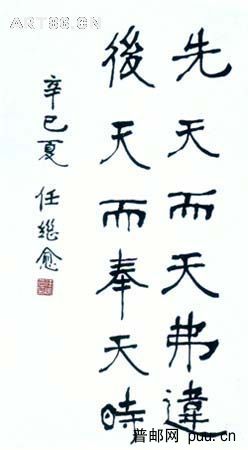 先天而天弗違
後天而奉天時
辛巳夏 任繼愈
ART86.CN
普邮网 puu.cn